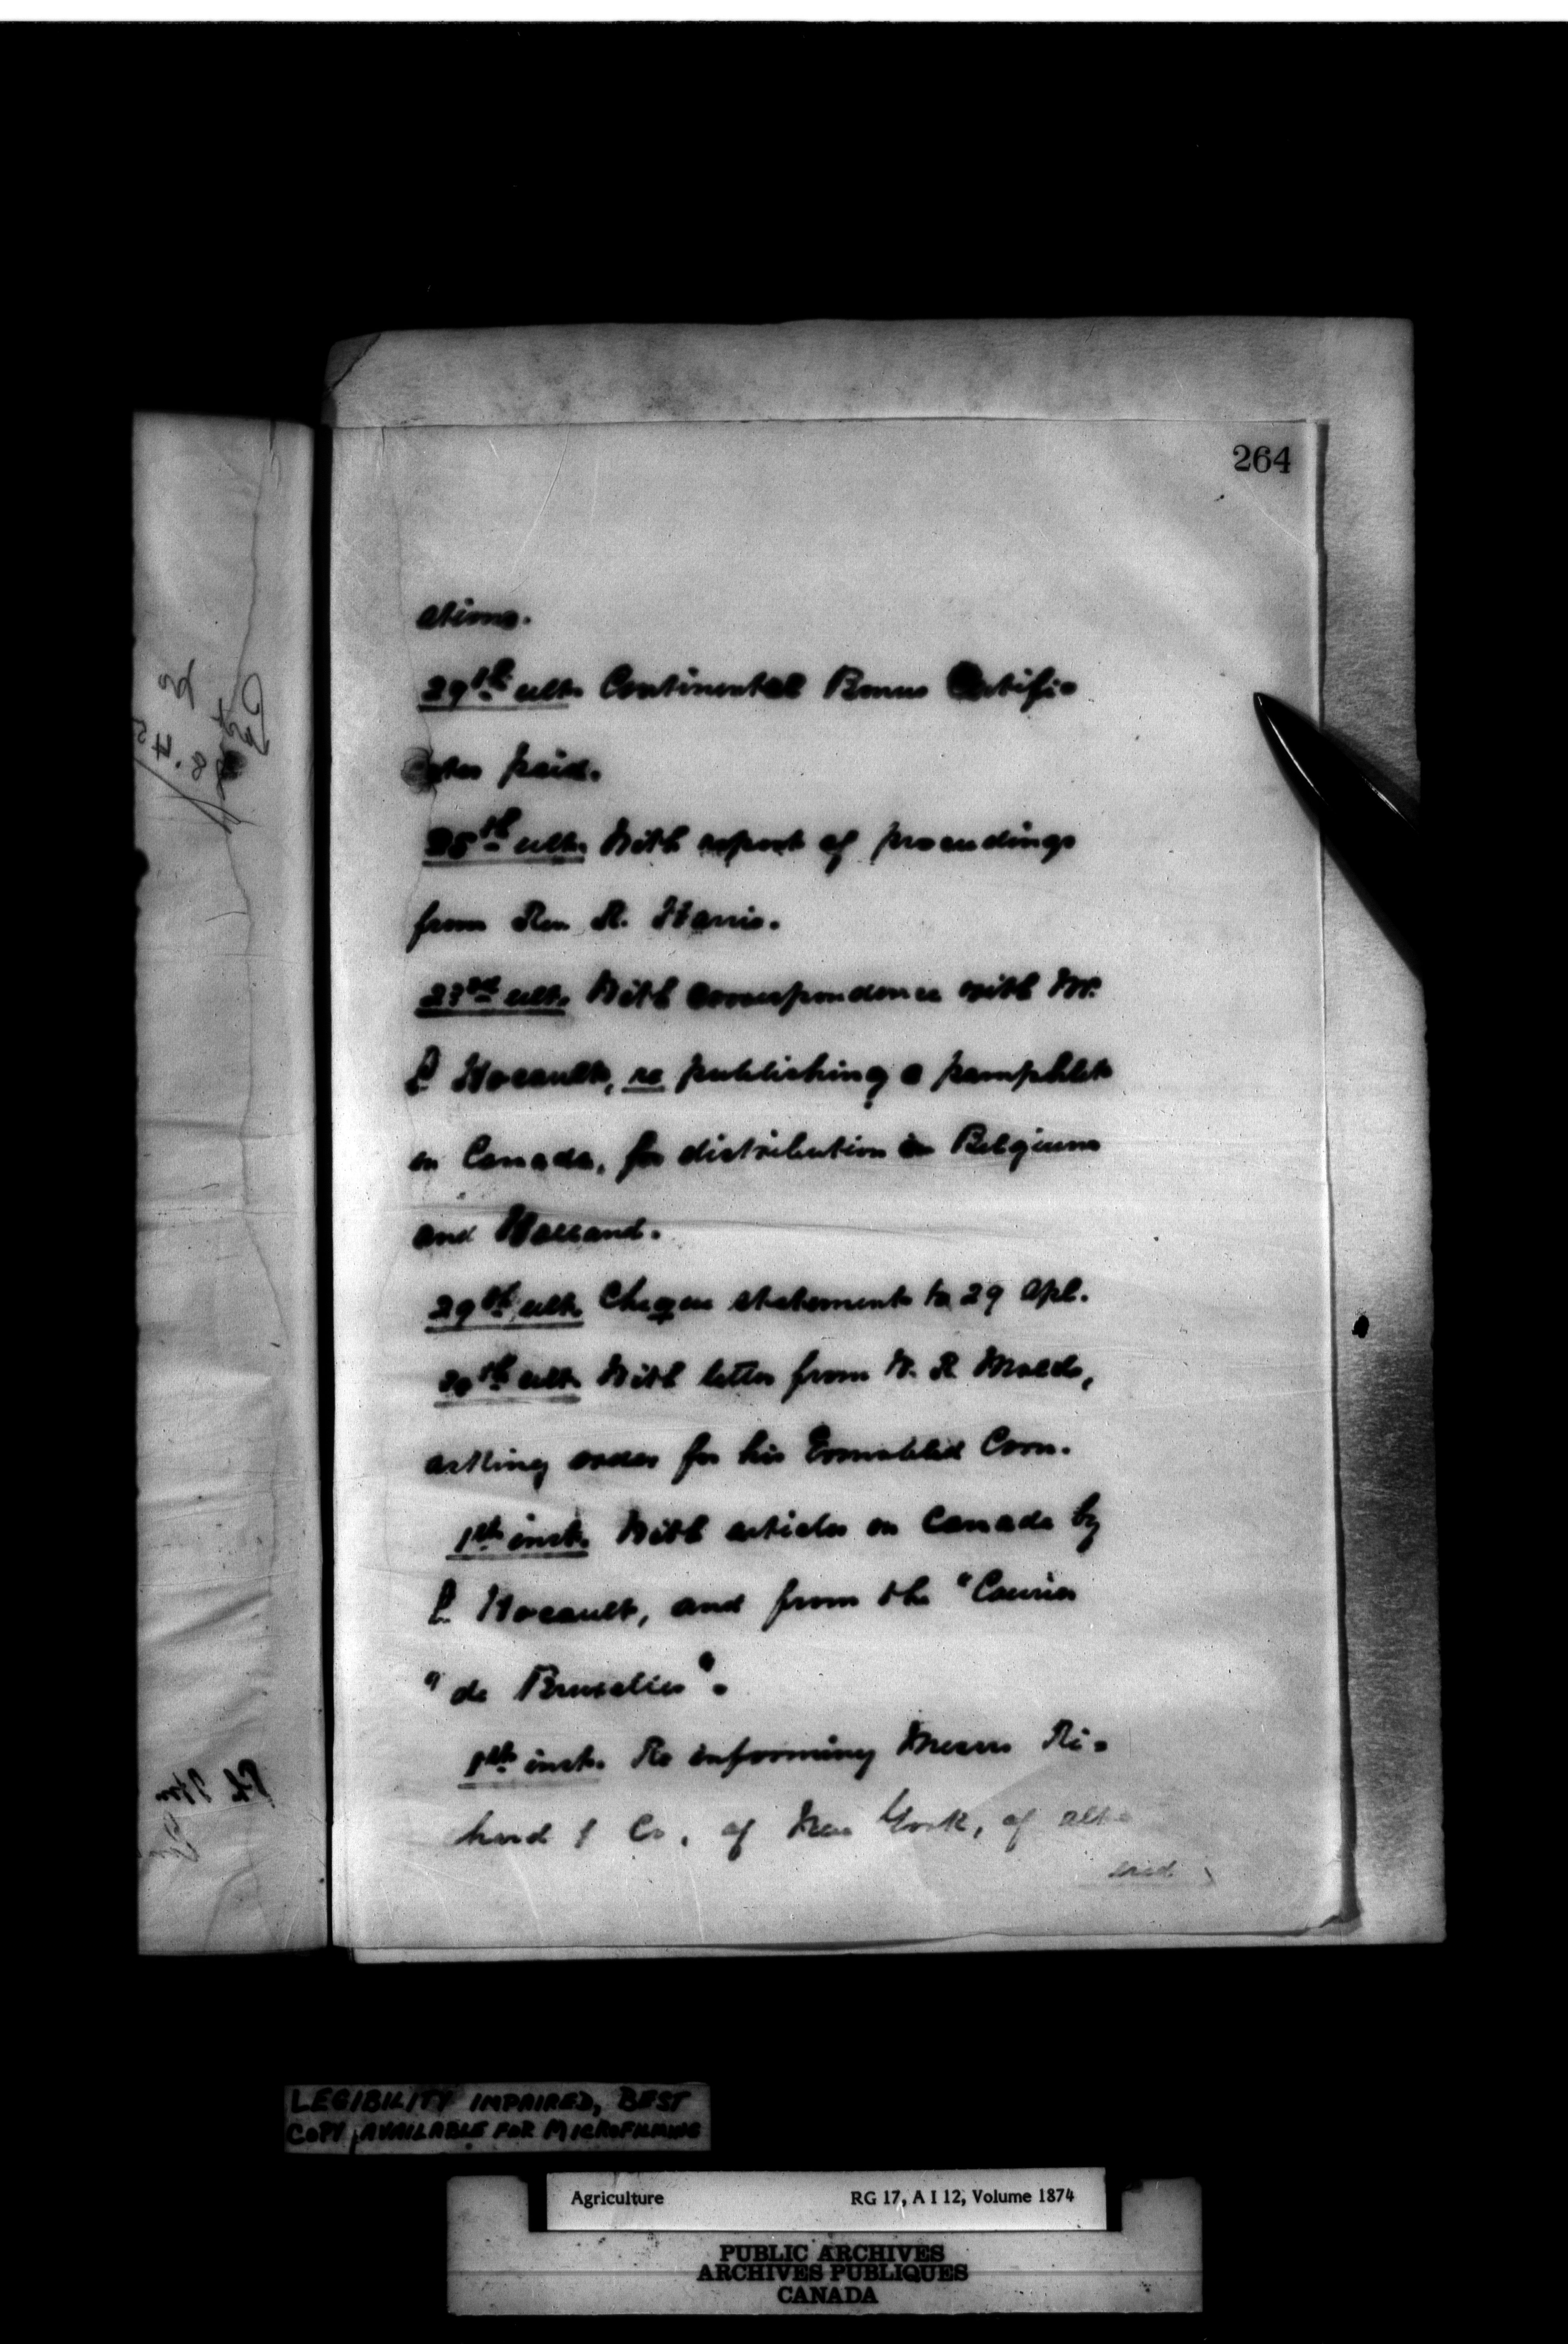 264
ations.
29th ult. Continental Bonus Certifi-
cates paid.
25th ult. With report of proceedings
from Rev R. Harris.
23rd ult. With correspondence with Mr.
re publishing a pamphlet
on Canada, for distribution in Belgium
and Holland.
29th ult. Cheque statement to 29 Apl.
30th ult. With letter from W. R.
order for his Corn.
1st inst. With articles on Canada by
and from the "Courier
" de Bruxelles".
1st inst. Re informing Messrs Ri-
hard & Co, of New York, of alt-
ered
LEGIBILITY IMPAIRED, BEST
COPY AVAILABLE FOR MICROFILMING
Agriculture RG 17, A I 12, Volume 1874
PUBLIC ARCHIVES
ARCHIVES PUBLIQUES
CANADA